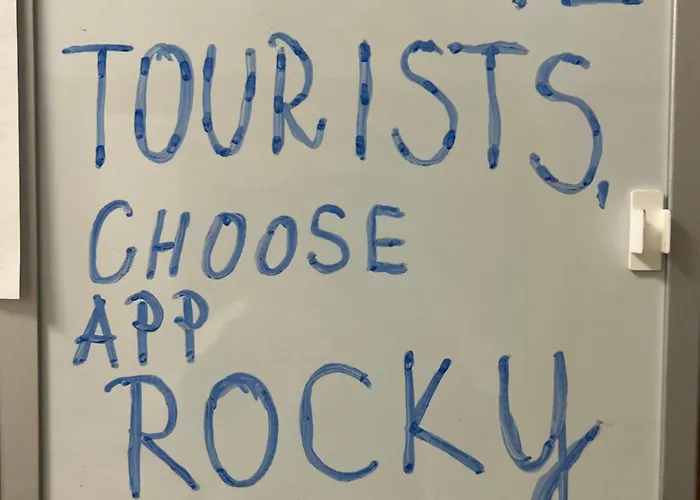 TOURISTS,
CHOOSE
APP
ROCKY